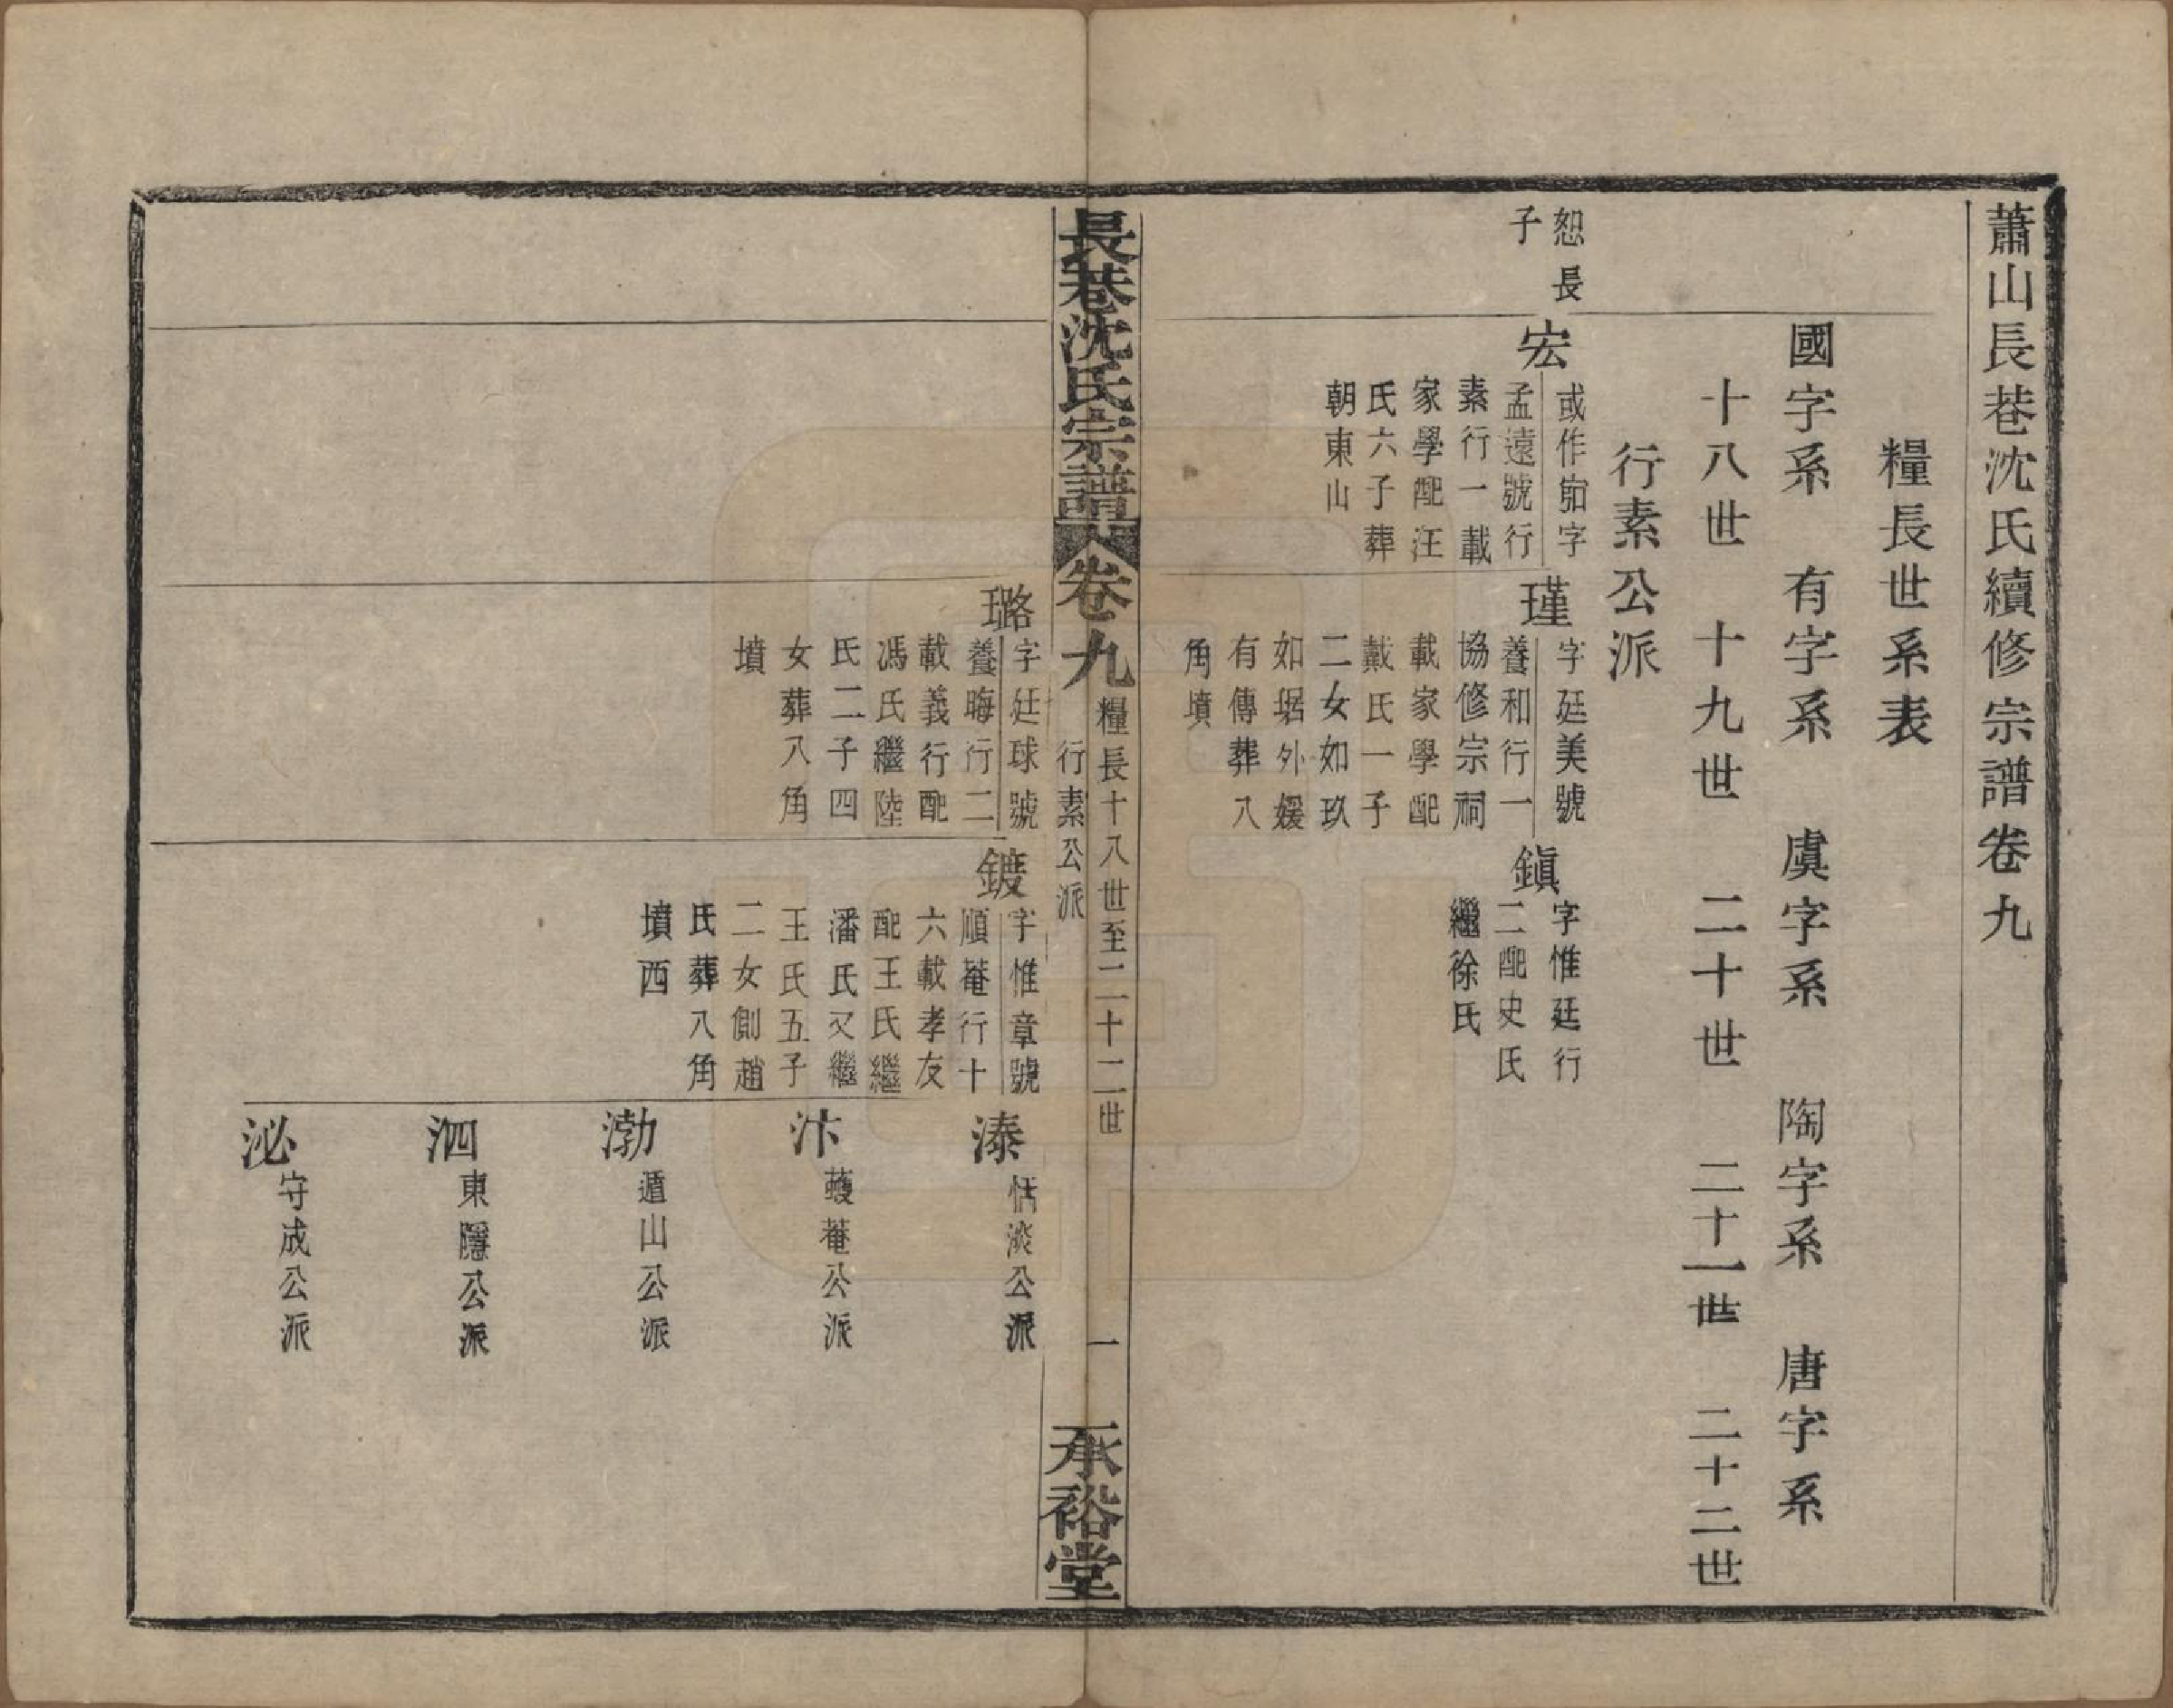 蕭山長巷沈氏續修宗譜卷九
糧長世系表
國字系 有字系 虞字系 陶字系 唐字系
十八世 十九世 二十世 二十一世 二十二世
行素公派
恕長
子
宏
或作㝒字
孟遠號行
素行一載
家學配汪
氏六子葬
朝東山
瑾
字廷美號
養和行一
協修宗祠
載家學配
戴氏一子
二女如玖
如琚外媛
有傳葬八
角墳
鎭
字惟廷行
二配史氏
繼徐氏
長巷沈氏宗譜 卷九 糧長十八世至二十二世 行素公派 一 承裕堂
璐
字廷球號
養晦行二
載義行配
馮氏繼陸
氏二子四
女葬八角
墳
鍍
字惟章號
順菴行十
六載孝友
配王氏繼
潘氏又繼
王氏五子
二女側趙
氏葬八角
墳西
溱
恬淡公派
汴
蘐菴公派
渤
遁山公派
泗
東隱公派
泌
守成公派